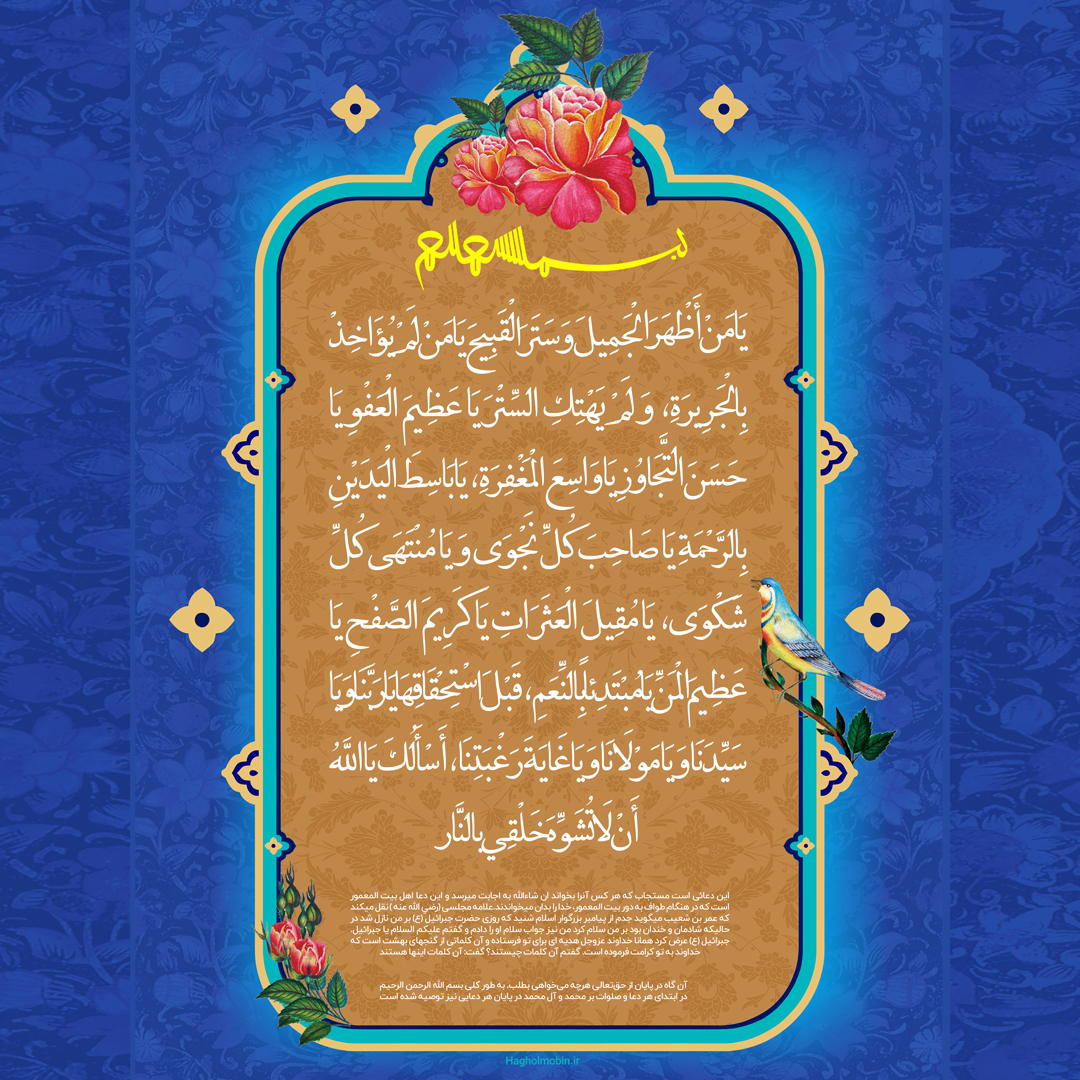 بسم الله الرحمن الرحیم
يَا مَنْ أَظْهَرَ الْجَمِيلَ وَ سَتَرَ الْقَبِيحَ يَا مَنْ لَمْ يُؤَاخِذْ
بِالْجَرِيرَةِ، وَ لَمْ يَهْتِكِ السِّتْرَ يَا عَظِيمَ الْعَفْوِ يَا
حَسَنَ التَّجَاوُزِ يَا وَاسِعَ الْمَغْفِرَةِ، يَا بَاسِطَ الْيَدَيْنِ
بِالرَّحْمَةِ يَا صَاحِبَ كُلِّ نَجْوَى وَ يَا مُنْتَهَى كُلِّ
شَكْوَى، يَا مُقِيلَ الْعَثَرَاتِ يَا كَرِيمَ الصَّفْحِ يَا
عَظِيمَ الْمَنِّ يَا مُبْتَدِئًا بِالنِّعَمِ، قَبْلَ اسْتِحْقَاقِهَا يَا رَبَّنَا وَ يَا
سَيِّدَنَا وَ يَا مَوْلَانَا وَ يَا غَايَةَ رَغْبَتِنَا، أَسْأَلُكَ يَا اللَّهُ
أَنْ لَا تُشَوِّهَ خَلْقِي بِالنَّار
این دعائی است مستجاب که هر کس آنرا بخواند ان شاءالله به اجابت میرسد و این دعا اهل بیت المعمور
است که در هنگام طواف به دور بیت المعمور، خدا را بدان میخواندند.علامه مجلسی (رضی الله عنه ) نقل میکند
که عمر بن شعیب میگوید جدم از پیامبر بزرگوار اسلام شنید که روزی حضرت جبرائیل (ع) بر من نازل شد در
حالیکه شادمان و خندان بود بر من سلام کرد من نیز جواب سلام او را دادم و گفتم علیکم السلام یا جبرائیل.
جبرائیل (ع) عرض کرد همانا خداوند عزوجل هدیه ای برای تو فرستاده و آن کلماتی از گنجهای بهشت است که
خداوند به تو کرامت فرموده است. گفتم آن کلمات چیستند؟ گفت: آن کلمات اینها هستند
آن گاه در پایان از حق‌تعالی هرچه می‌خواهی بطلب. به طور کلی بسم الله الرحمن الرحیم
در ابتدای هر دعا و صلوات بر محمد و آل محمد در پایان هر دعایی نیز توصیه شده است
Hagholmobin.ir